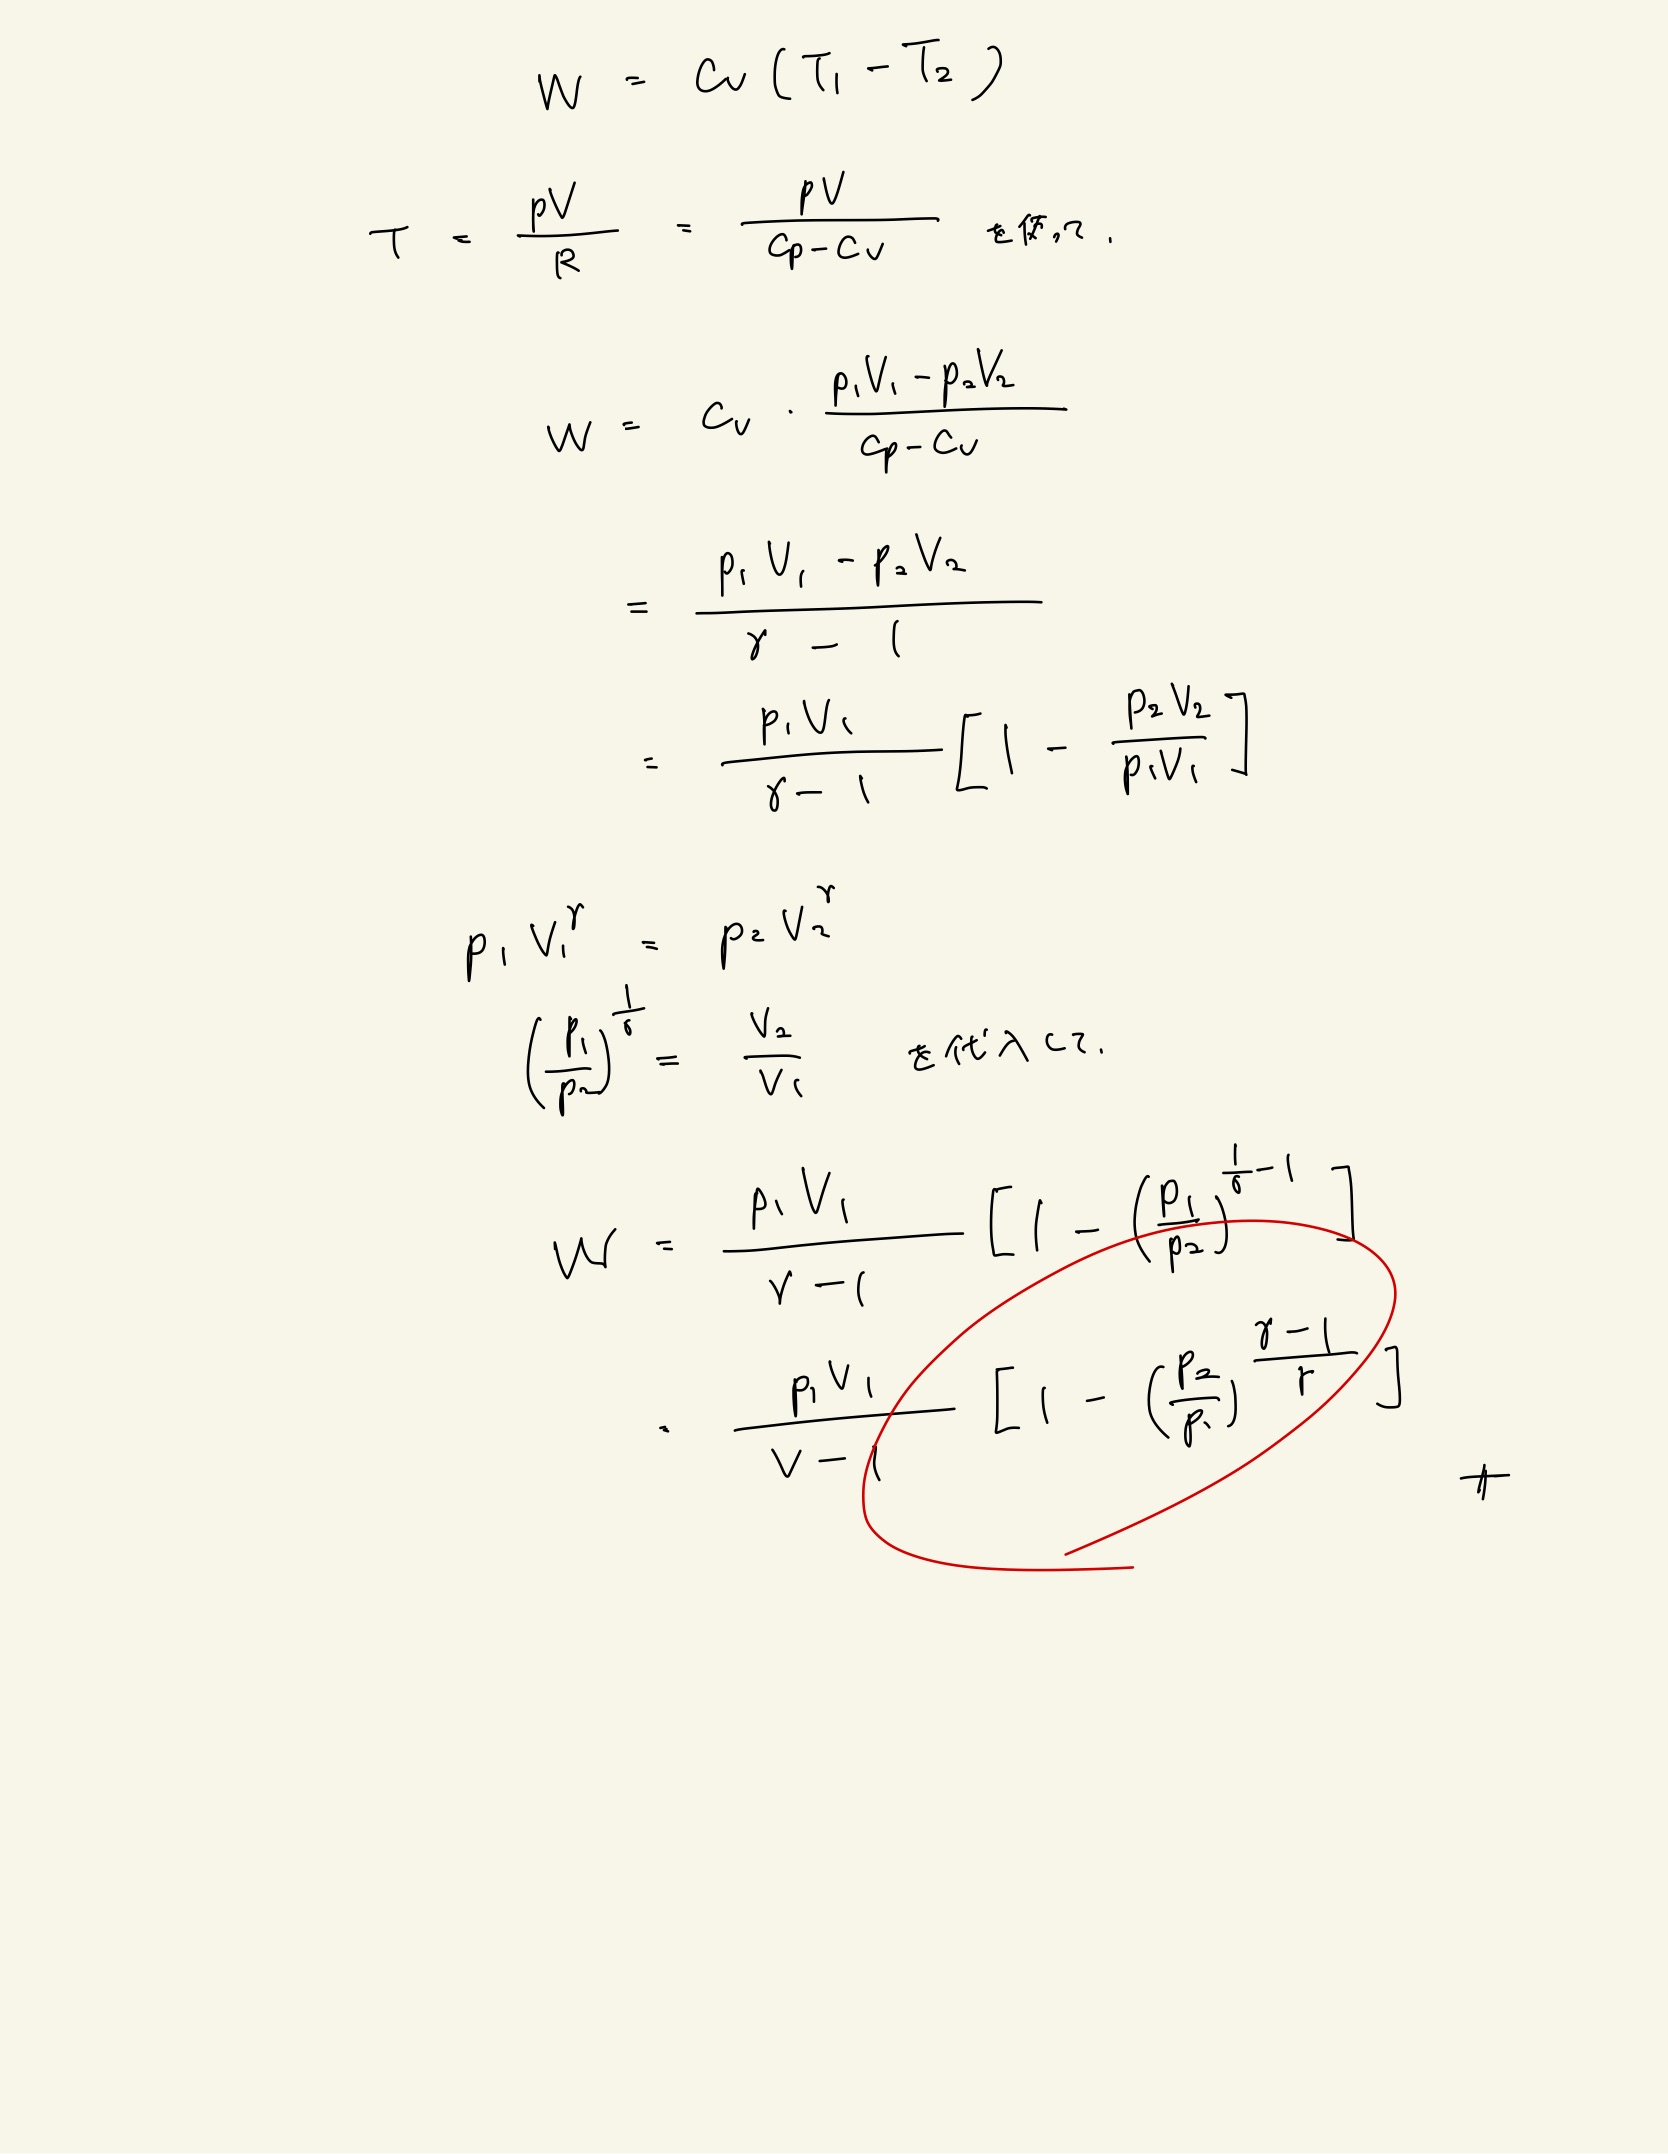 W = Cv (T₁ - T₂)
T = pV/R = pV/(Cp - Cv) を使って,
W = Cv · (p₁V₁ - p₂V₂)/(Cp - Cv)
= (p₁V₁ - p₂V₂)/(γ - 1)
= p₁V₁/(γ - 1) [1 - p₂V₂/p₁V₁]
p₁V₁^γ = p₂V₂^γ
(p₁/p₂)^(1/γ) = V₂/V₁ を代入して.
W = p₁V₁/(γ - 1) [1 - (p₁/p₂)^(1/γ - 1)]
= p₁V₁/(γ - 1) [1 - (p₂/p₁)^((γ - 1)/γ)]